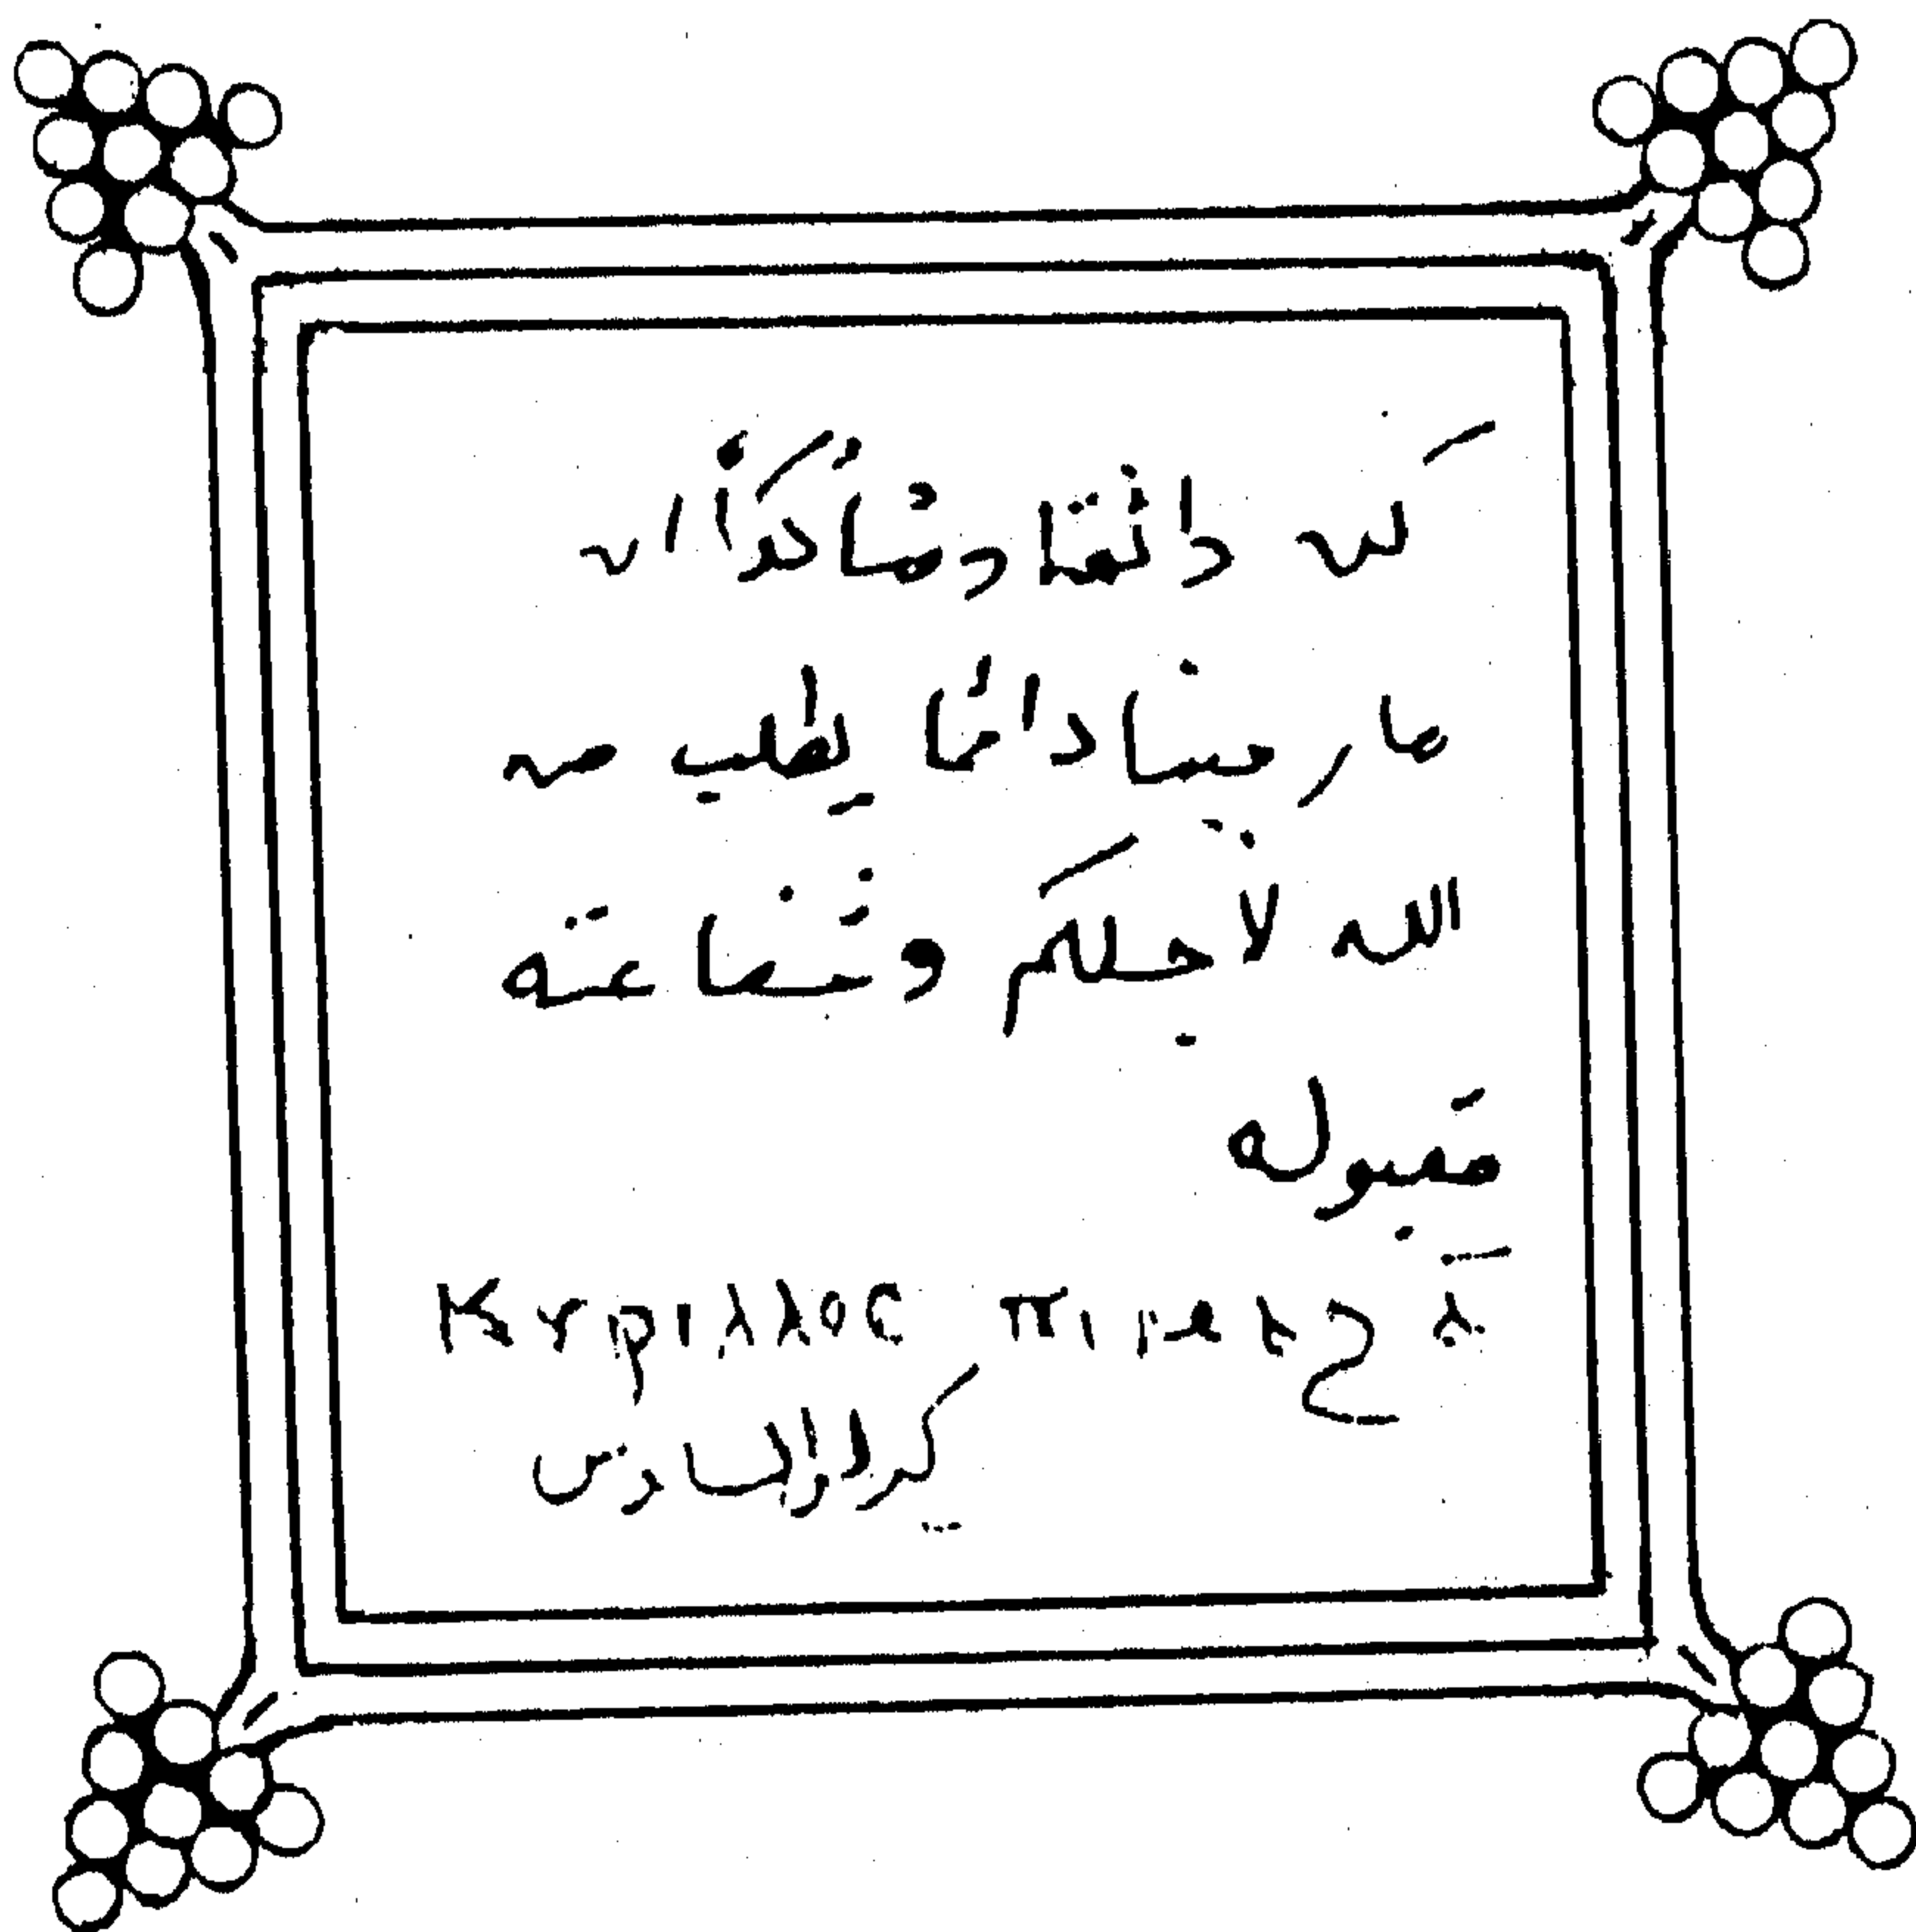 كن دائمًا ومتأكدًا أن
مار مينا دائمًا يطلب من
الله لأجلكم وشفاعته
مقبوله
Ⲕⲩⲣⲓⲗⲗⲟⲥ ⲡⲓⲙⲁϩ ⲋ̅
كيرلس السادس